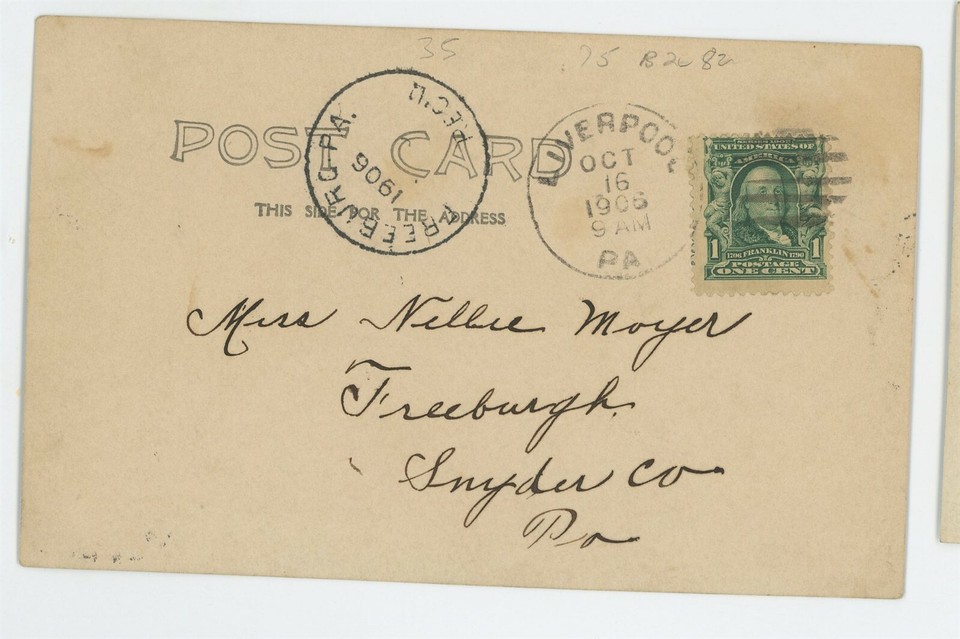 35
75 B20 82
POST CARD
THIS SIDE FOR THE ADDRESS
FREEBURG PA.
REC'D
1906
LIVERPOOL
OCT
16
1906
9 AM
PA
UNITED STATES OF
AMERICA
1 1706 FRANKLIN 1790 1
POSTAGE
ONE CENT
Miss Nellie Moyer
Freeburgh
Snyder Co
Pa